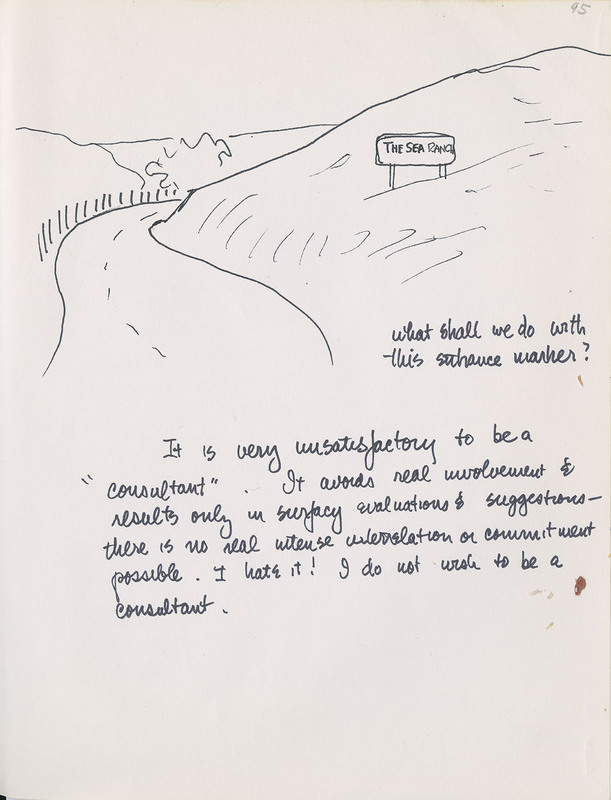 95
THE SEA RANCH
what shall we do with
this entrance marker?
It is very unsatisfactory to be a
"consultant". It avoids real involvement &
results only in surfacy evaluations & suggestions—
there is no real intense interrelation or commitment
possible. I hate it! I do not wish to be a
consultant.